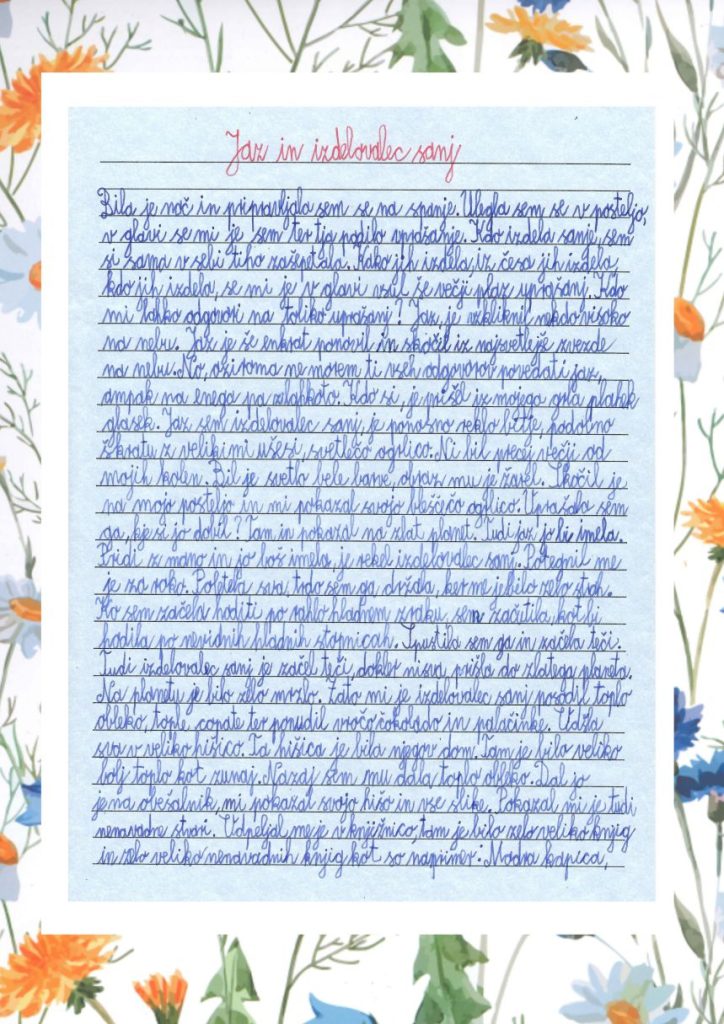 Jaz in izdelovalec sanj
Bila je noč in pripravljala sem se na spanje. Ulegla sem se v posteljo,
v glavi se mi je sem ter tja podilo vprašanje. Kdo izdela sanje, sem
si sama v sebi tiho zašepetala. Kako jih izdela, iz česa jih izdela,
kdo jih izdela, se mi je v glavi vsul še večji plaz vprašanj. Kdo
mi lahko odgovori na toliko vprašanj? Jaz, je vzkliknil nekdo visoko
na nebu. Jaz je še enkrat ponovil in skočil iz najsvetlejše zvezde
na nebu. No, oziroma ne morem ti vseh odgovorov povedati jaz,
ampak na enega pa zelahkoto. Kdo si, je prišel iz mojega grla plahek
glasek. Jaz sem izdelovalec sanj, je ponosno reklo bitje, podobno
škratu z velikimi ušesi, svetlečo ogrlico. Ni bil precej večji od
mojih kolen. Bil je svetlo bele barve, obraz mu je žarel. Skočil je
na mojo posteljo in mi pokazal svojo bleščečo ogrlico. Vprašala sem
ga, kje si jo dobil? Tam in pokazal na zlat planet. Tudi jaz jo bi imela.
Pridi z mano in jo boš imela, je rekel izdelovalec sanj. Potegnil me
je za roko. Poletela sva, trdo sem ga držala, ker me je bilo zelo strah.
Ko sem začela hoditi po rahlo hladnem zraku, sem začutila, kot bi
hodila po nevidnih hladnih stopnicah. Spustila sem ga in začela teči.
Tudi izdelovalec sanj je začel teči, dokler nisva prišla do zlatega planeta.
Na planetu je bilo zelo mrzlo. Zato mi je izdelovalec sanj posodil toplo
obleko, tople copate ter ponudil vročo čokolado in palačinke. Vdrla
sva v veliko hišico. Ta hišica je bila njegov dom. Tam je bilo veliko
bolj toplo kot zunaj. Nazaj sem mu dala toplo obleko. Dal jo
je na obešalnik, mi pokazal svojo hišo in vse slike. Pokazal mi je tudi
nenavadne stvari. Odpeljal me je v knjižnico, tam je bilo zelo veliko knjig
in zelo veliko nenavadnih knjig kot so naprimer: Modra kapica,